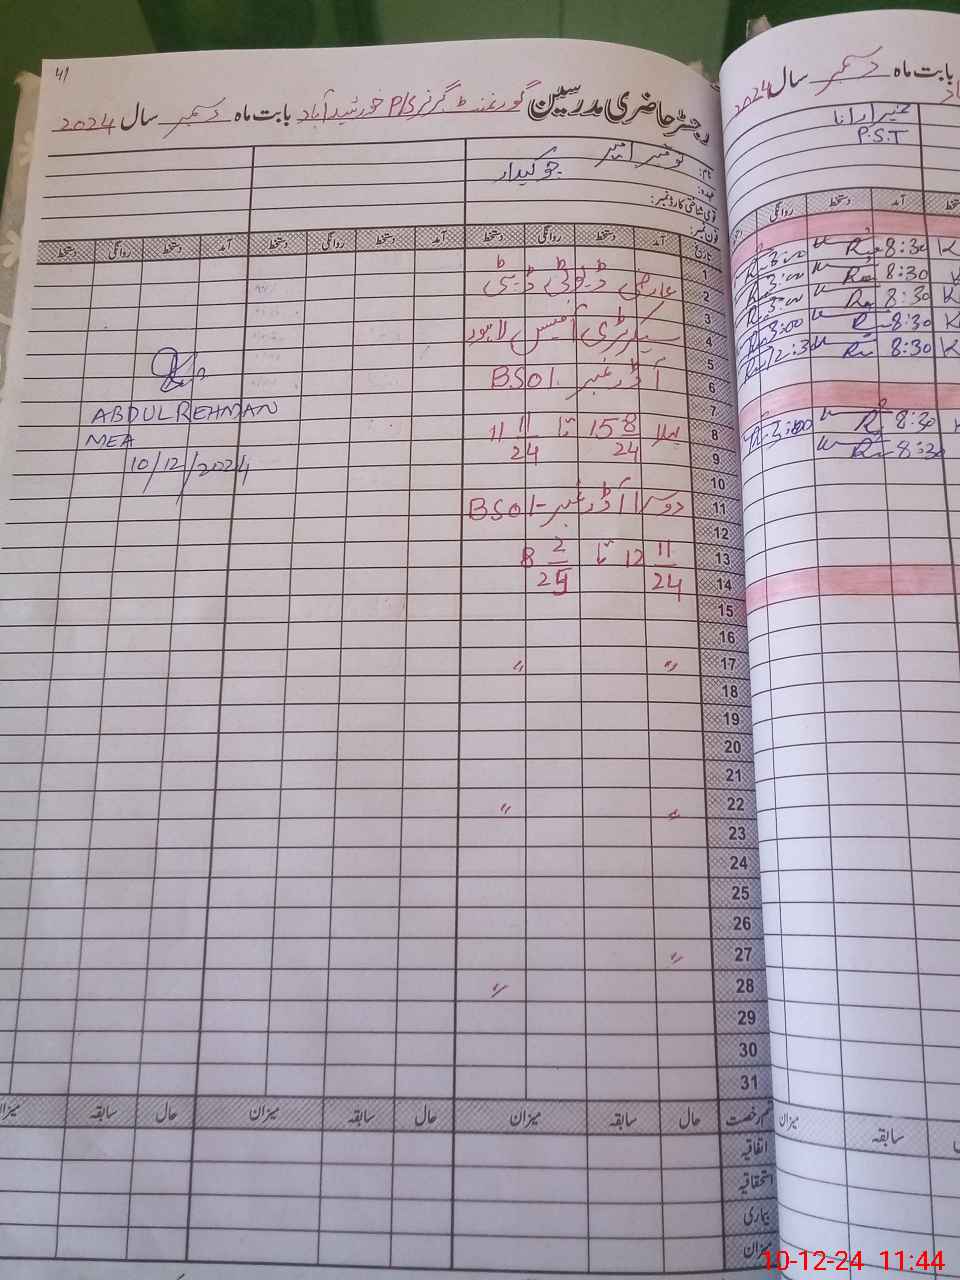 41
رجسٹر حاضری مدرسین گورنمنٹ گرلز P/S خورشید آباد بابت ماہ دسمبر سال 2024
نام:
عہدہ: چوکیدار
قومی شناختی کارڈ نمبر:
فون نمبر:
تاریخ آمد دستخط روانگی دستخط آمد دستخط روانگی دستخط آمد دستخط روانگی دستخط
1
عارضی ڈیوٹی ڈی ٹی
2
3
سیکرٹری آفیس لاہور
4
5
آڈر نمبر BSO1.
6
7
پہلا 15 8/24 تا 11 11/24
8
9
10
دوسرا آڈر نمبر BSO1-
11
12
12 11/24 تا 8 2/25
13
14
15
16
17 〃 〃
18
19
20
21
22 〃 〃
23
24
25
26
27 〃
28 〃
29
30
31
ABDUL REHMAN
MEA
10/12/2024
قسم رخصت حال سابقہ میزان حال سابقہ میزان حال سابقہ میزان
اتفاقیہ
استحقاقیہ
بیماری
میزان
بابت ماہ دسمبر سال 2024
P.S.T
دستخط آمد دستخط روانگی
8:30 3:00
8:30 3:00
8:30 3:00
8:30 3:00
8:30 12:30
8:30
8:30
سابقہ میزان
10-12-24 11:44